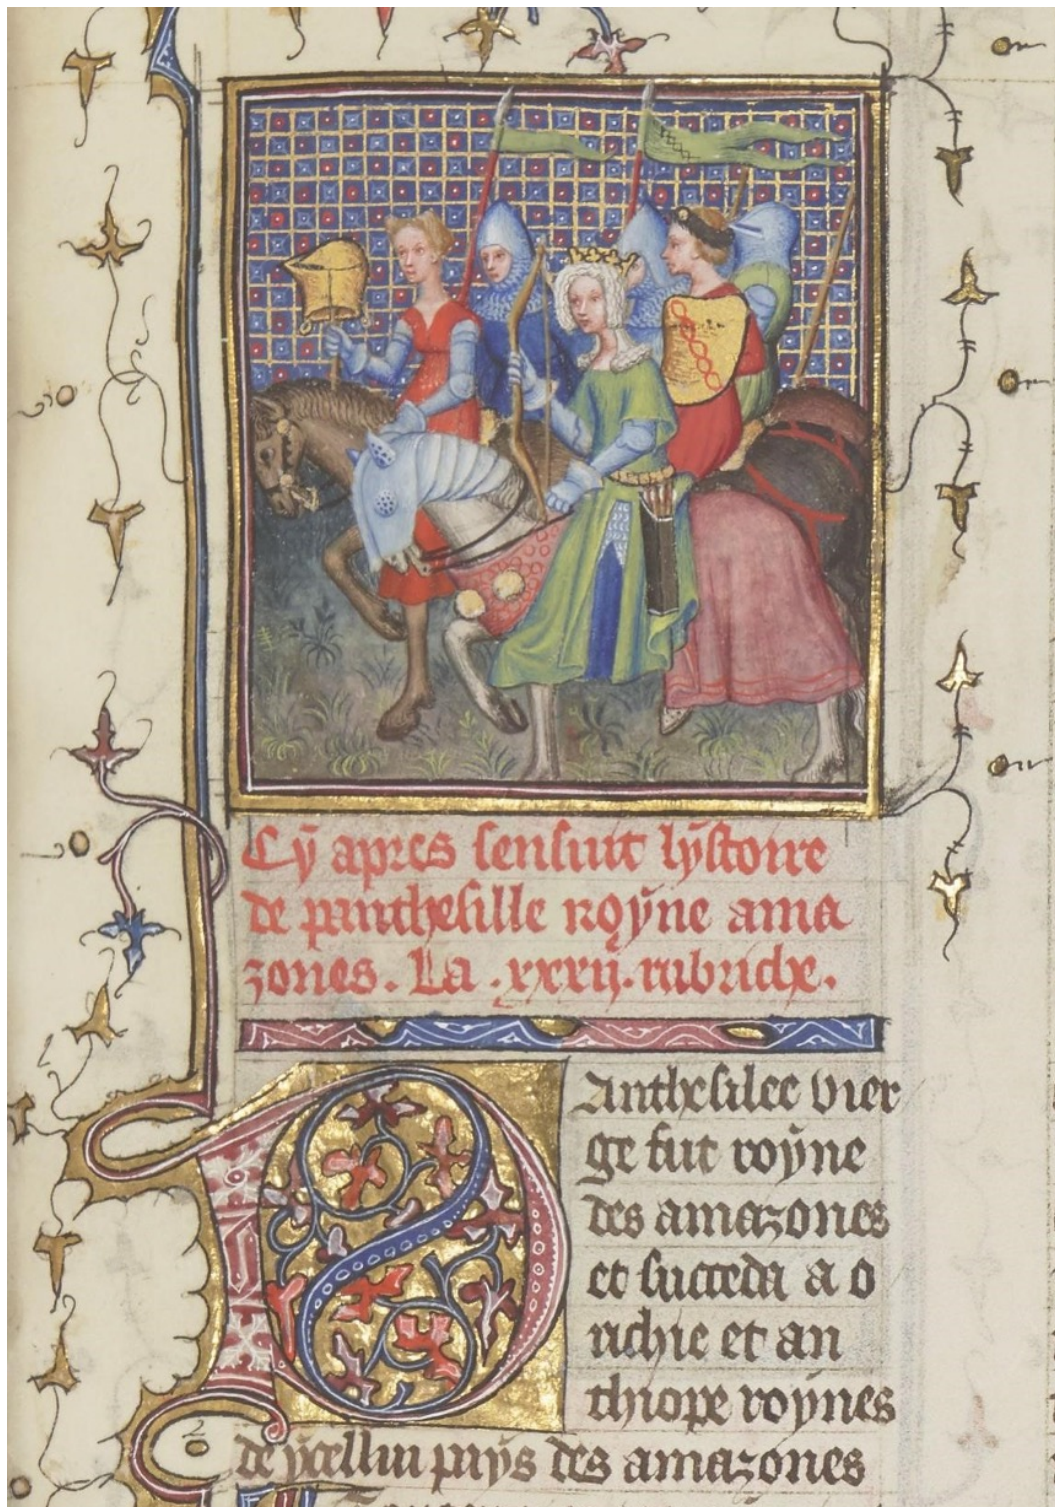 Cy apres sensuit lystoire
de panthesille royne ama
zones. La .xxxij. rubriche.
Panthesilee vier
ge fut royne
des amazones
et succeda a o
richie et an
thiope roynes
de ycellui pays des amazones